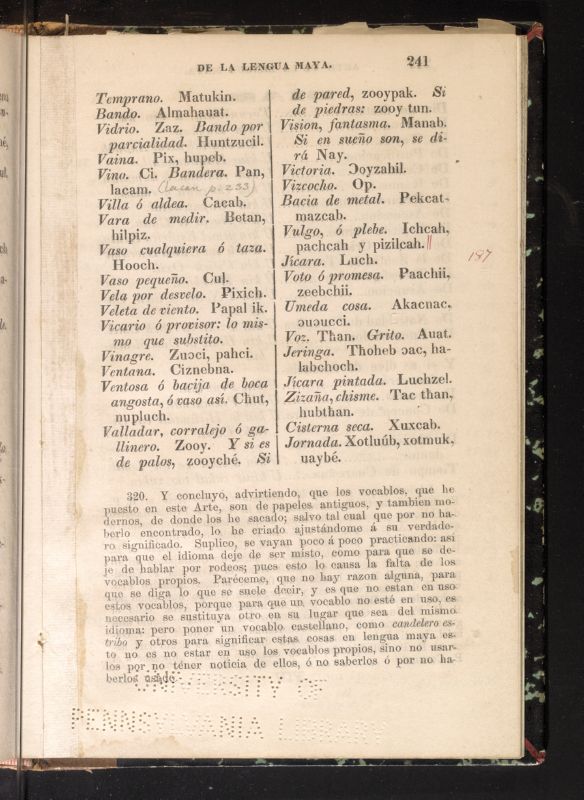 DE LA LENGUA MAYA. 241
Temprano. Matukin.
Bando. Almahauat.
Vidrio. Zaz. Bando por
parcialidad. Huntzucil.
Vaina. Pix, hupeb.
Vino. Ci. Bandera. Pan,
lacam. (lacan p. 233)
Villa ó aldea. Cacab.
Vara de medir. Betan,
hilpiz.
Vaso cualquiera ó taza.
Hooch.
Vaso pequeño. Cul.
Vela por desvelo. Pixich.
Veleta de viento. Papal ik.
Vicario ó provisor: lo mis-
mo que substito.
Vinagre. Zuɔci, pahci.
Ventana. Ciznebna.
Ventosa ó bacija de boca
angosta, ó vaso así. Chut,
nupluch.
Valladar, corralejo ó ga-
llinero. Zooy. Y si es
de palos, zooyché. Si
de pared, zooypak. Si
de piedras: zooy tun.
Vision, fantasma. Manab.
Si en sueño son, se di-
rá Nay.
Victoria. Ɔoyzahil.
Vizcocho. Op.
Bacia de metal. Pekcat-
mazcab.
Vulgo, ó plebe. Ichcah,
pachcah y pizilcah.||
187
Jícara. Luch.
Voto ó promesa. Paachii,
zeebchii.
Umeda cosa. Akacnac,
ɔuɔucci.
Voz. Than. Grito. Auat.
Jeringa. Thoheb ɔac, ha-
labchoch.
Jícara pintada. Luchzel.
Zizaña, chisme. Tac than,
hubthan.
Cisterna seca. Xuxcab.
Jornada. Xotluúb, xotmuk,
uaybé.
320. Y concluyo, advirtiendo, que los vocablos, que he
puesto en este Arte, son de papeles antiguos, y tambien mo-
dernos, de donde los he sacado; salvo tal cual que por no ha-
berlo encontrado, lo he criado ajustándome á su verdade-
ro significado. Suplico, se vayan poco á poco practicando: así
para que el idioma deje de ser misto, como para que se de-
je de hablar por rodeos; pues esto lo causa la falta de los
vocablos propios. Paréceme, que no hay razon alguna, para
que se diga lo que se suele decir, y es que no estan en uso
estos vocablos, porque para que un vocablo no esté en uso, es
necesario se sustituya otro en su lugar que sea del mismo
idioma: pero poner un vocablo castellano, como candelero es-
tribo y otros para significar estas cosas en lengua maya es-
to no es no estar en uso los vocablos propios, sino no usar-
los por no téner noticia de ellos, ó no saberlos ó por no ha-
berlos usado.
UNIVERSITY OF
PENNSYLVANIA LIBRARY